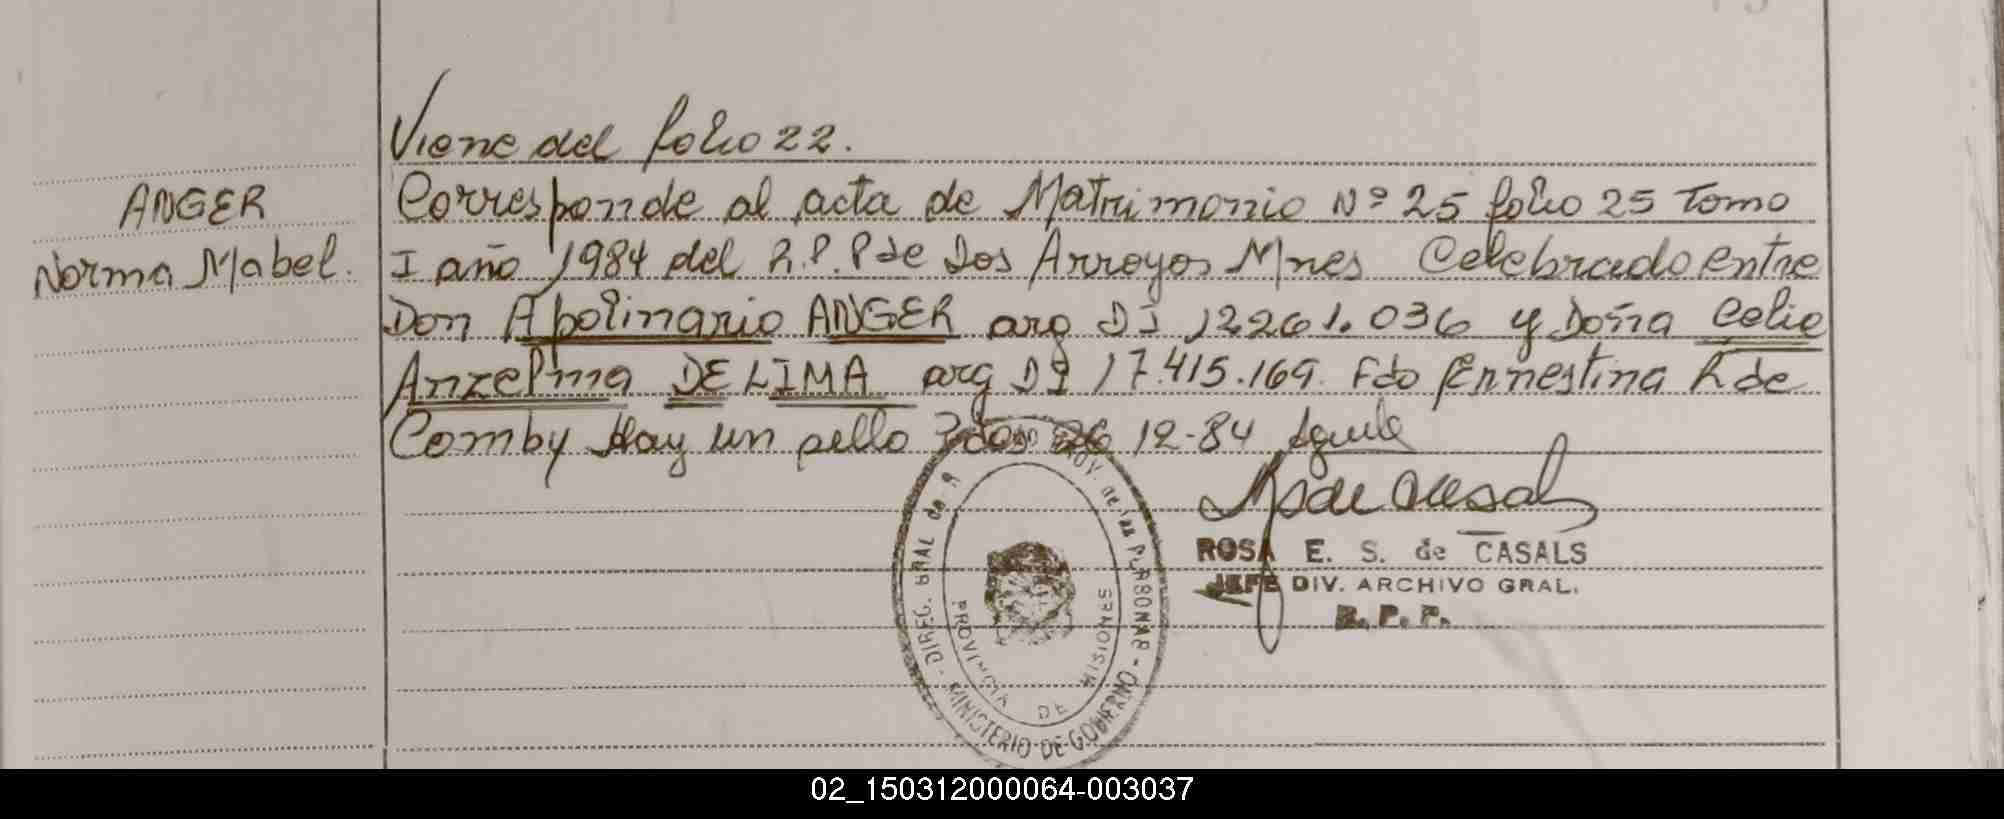 Viene del folio 22.
ANGER
Norma Mabel.
Corresponde al acta de Matrimonio Nº 25 folio 25 Tomo
I año 1984 del R.P.P de Dos Arroyos Mnes Celebrado entre
Don Apolinario ANGER arg DI 12261.036 y Doña Celia
Anzelma DE LIMA arg DI 17.415.169. Fdo Ernestina R de
Comby Hay un sello Pdas 26 12-84 Aguila
ROSA E. S. de CASALS
JEFE DIV. ARCHIVO GRAL.
R. P. P.
DIREG. GRAL de PROV. de las PERSONAS - MINISTERIO DE GOBIERNO
PROVINCIA DE MISIONES
02_150312000064-003037